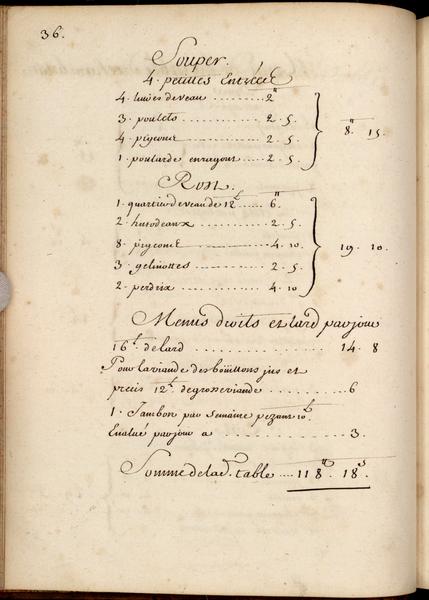 36.
Souper.
4. petittes Entrées
4. livres de veau .......... 2ᵗᵗ
3. poulets .......... 2. 5.
4. pigeons .......... 2. 5.
1. poularde en ragout .......... 2. 5.
8ᵗᵗ. 15
Rost.
1. quartier de veau de 12ᵗ .... 6ᵗᵗ
2. hutodeaux .......... 2. 5.
8. pigeons .......... 4. 10.
3. gelinottes .......... 2. 5.
2. perdrix .......... 4. 10
19. 10.
Menus droits et lard par jour
16ᵗ. de lard .......... 14. 8
Pour la viande des bouillons jus et
precis 12ᵗ. de grosse viande .......... 6
1. Jambon par semaine pezant 10ᵗ
Evalué par jour a .......... 3.
Somme de lad. table .... 118ᵗᵗ. 18ˢ.